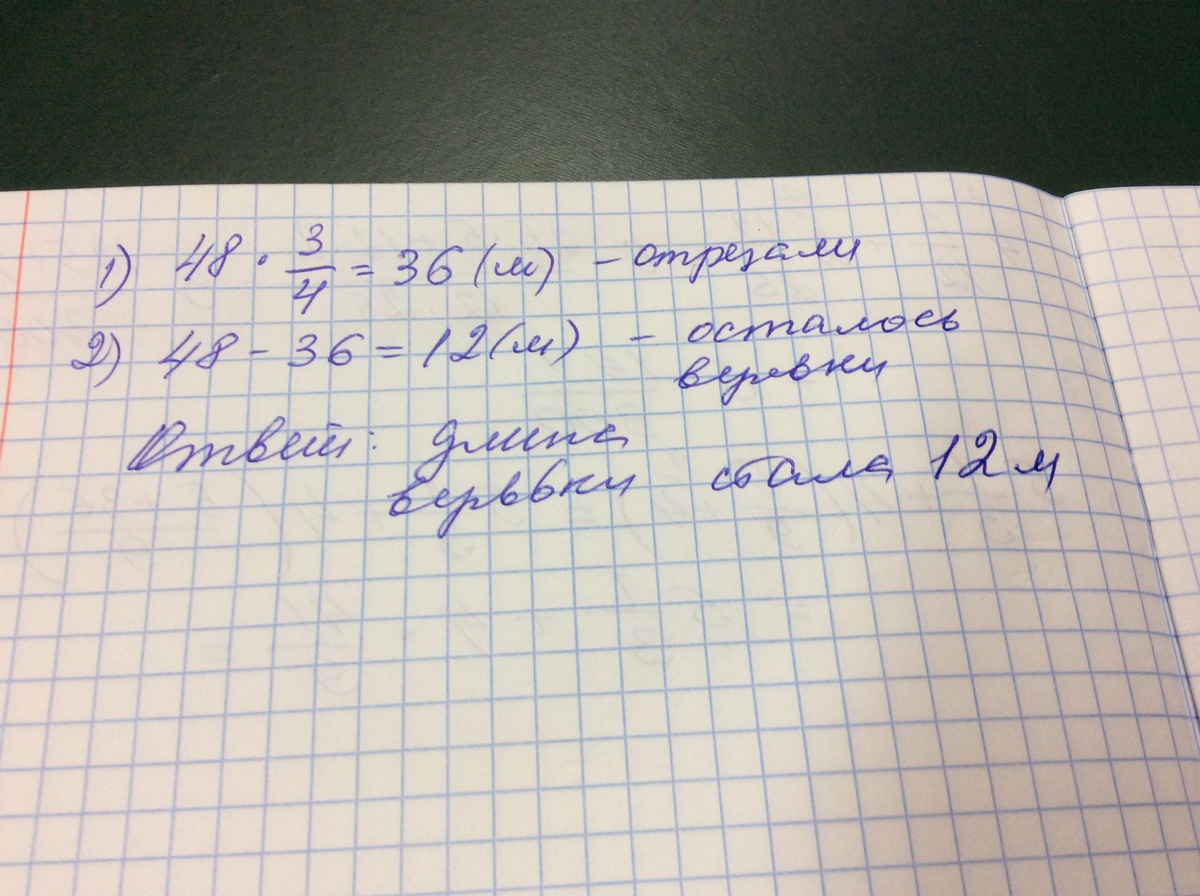 1) 48 · 3/4 = 36 (м) – отрезали
2) 48 – 36 = 12 (м) – осталось
верёвки
Ответ: длина
верёвки стала 12 м